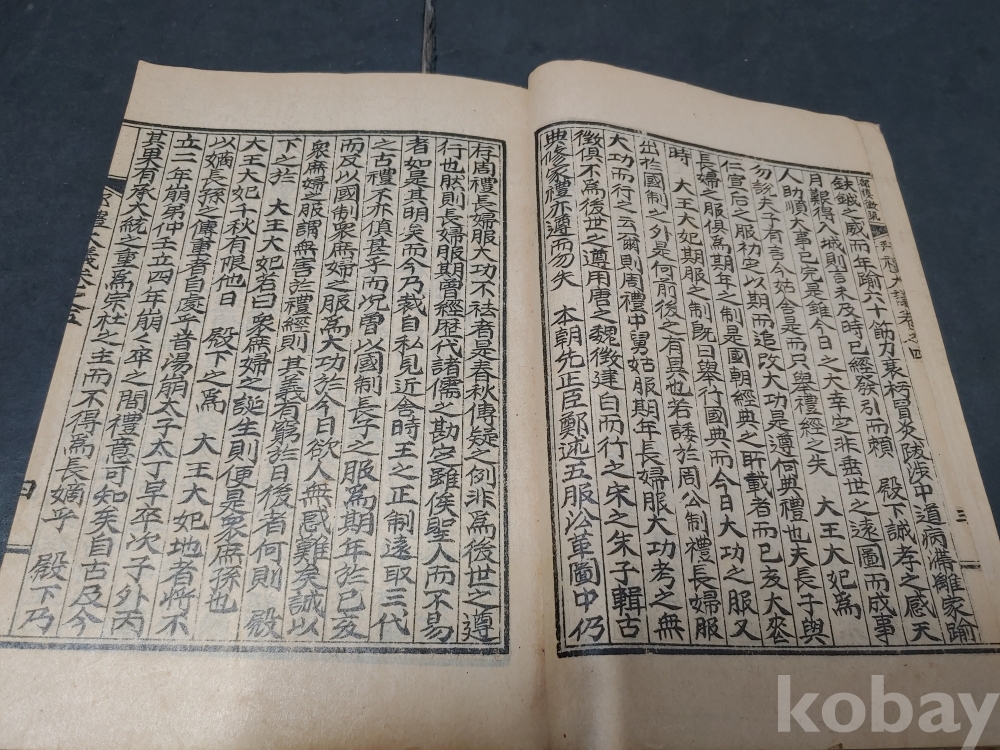 鈇鉞之威而年踰六十筋力衰朽冒炎陂涉中道病滯離家踰
月艱得入城則言未及時已經發引而賴 殿下誠孝之感天
人助順大事已完是雖今日之大幸实非垂世之遠圖而成事
勿說夫子有言今姑舍是而只與禮經之失 大王大妃爲
仁宣后之服初定以期而追改大功是遵何典禮也夫長子與
長婦之服俱爲期年之制是國朝經典之所載者而已亥大丧
時 大王大妃期服之制既曰舉行國典而今日大功之服又
出於國制之外是何前後之有異也若諉於周公制禮長婦服
大功而行之云爾則周禮中舅姑服期年長婦服大功考之無
徵俱不爲後世之遵用唐之魏徵建白而行之宋之朱子輯古
典修家禮亦遵而勿失 本朝先正臣鄭逑五服沿革圖中仍
存周禮長婦服大功不祛者是春秋傳疑之例非爲後世之遵
行也肰則長婦服期曾經歷代諸儒之勘定雖俟聖人而不易
者如是其明矣而今乃裁自私見近舍時王之正制遠取三代
之古禮不亦傎甚乎而况曾以國制長子之服爲期年於已亥
而反以國制衆庶婦之服爲大功於今日欲人無惑難矣誠以
衆庶婦之服謂無害於禮經則其義有窮於日後者何則 殿
下之於 大王大妃若曰衆庶婦之誕生則便是衆庶孫也
大王大妃千秋有限他日 殿下之爲 大王大妃地者將不
以嫡長孫之傳重者自處乎昔湯崩太子太丁早卒次子外丙
立二年崩弟仲壬立四年崩之卒之間禮意可知矣自古及今
其果有承大統之重爲宗社之主而不得爲長嫡乎 殿下乃
四
三